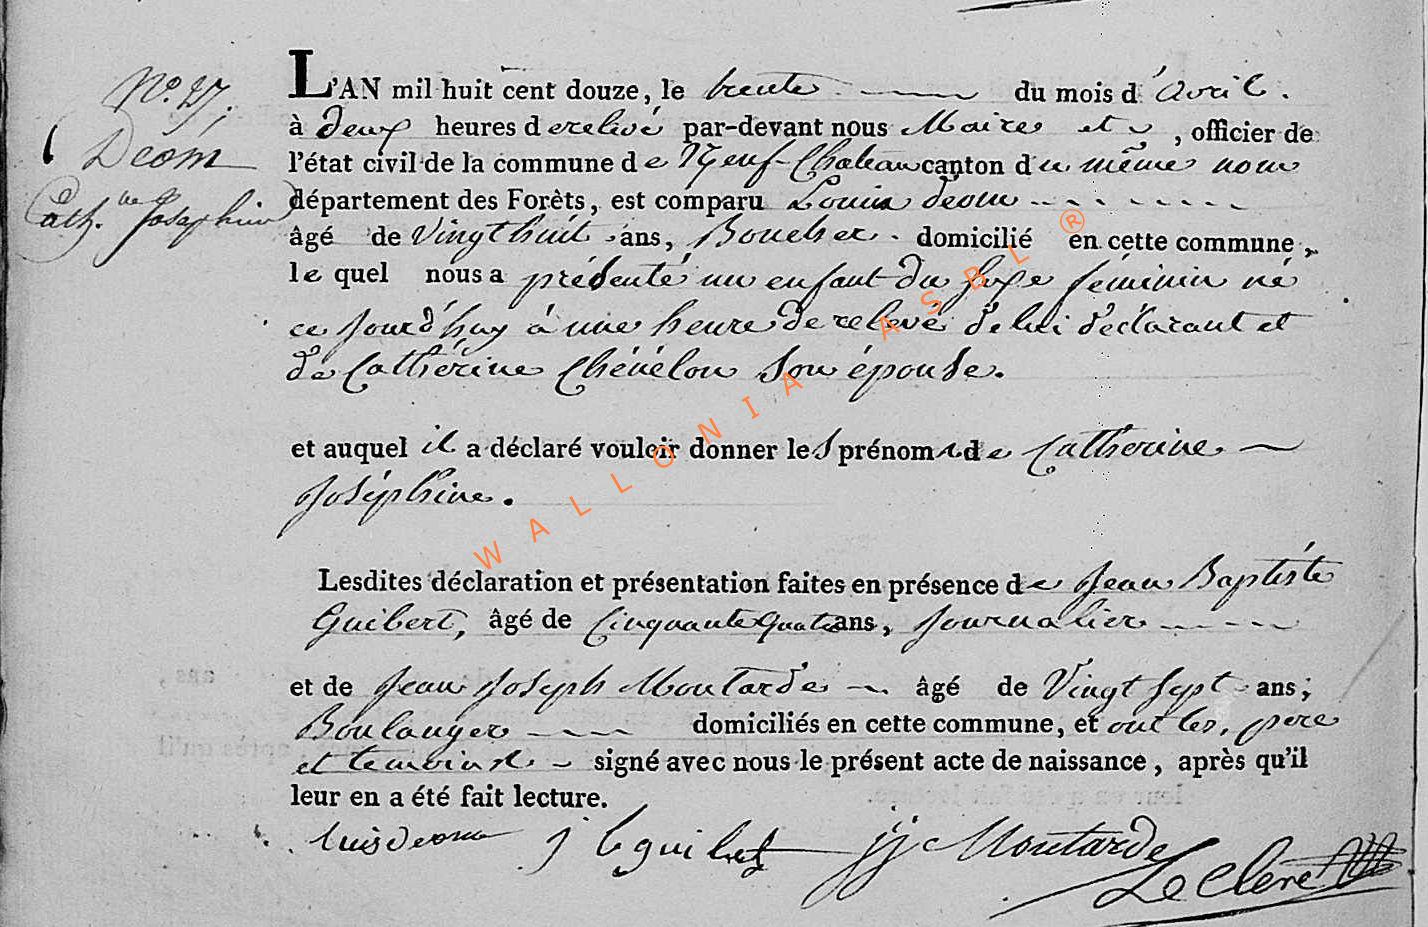 N.º 27.
Deom
Cath.ne Josephine
L'AN mil huit cent douze, le trente du mois d'avril.
à deux heures de relevé par-devant nous Maire et , officier de
l'état civil de la commune de Neuf-Chateau canton du même nom
département des Forêts, est comparu Louis deom
âgé de Vingt huit ans, Boucher domicilié en cette commune,
le quel nous a présenté un enfant du sexe féminin né
ce jourd'huy à une heure de relevé de lui déclarant et
de Cathérine Chénélon son épouse.
et auquel il a déclaré vouloir donner les prénoms de Catherine
Joséphine.
Lesdites déclaration et présentation faites en présence de Jean Baptiste
Guibert, âgé de Cinquante quatre ans, Journalier
et de Jean Joseph Moutarde âgé de Vingt sept ans;
Boulanger domiciliés en cette commune, et ont les, père
et temoins signé avec nous le présent acte de naissance, après qu'il
leur en a été fait lecture.
luis deom j b guibert jj Moutarde
Leclere
WALLONIA ASBL ®